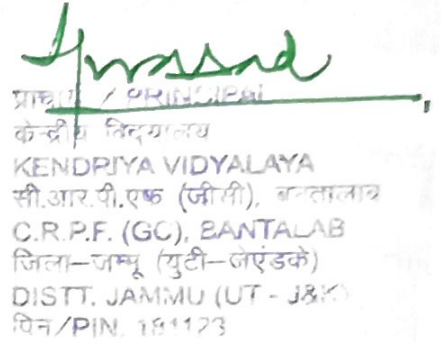 प्राचार्य / PRINCIPAL
केन्द्रीय विद्यालय
KENDRIYA VIDYALAYA
सी.आर.पी.एफ (जीसी), बनतालाब
C.R.P.F. (GC), BANTALAB
जिला–जम्मू (युटी–जेएंडके)
DISTT. JAMMU (UT - J&K)
पिन/PIN. 181123